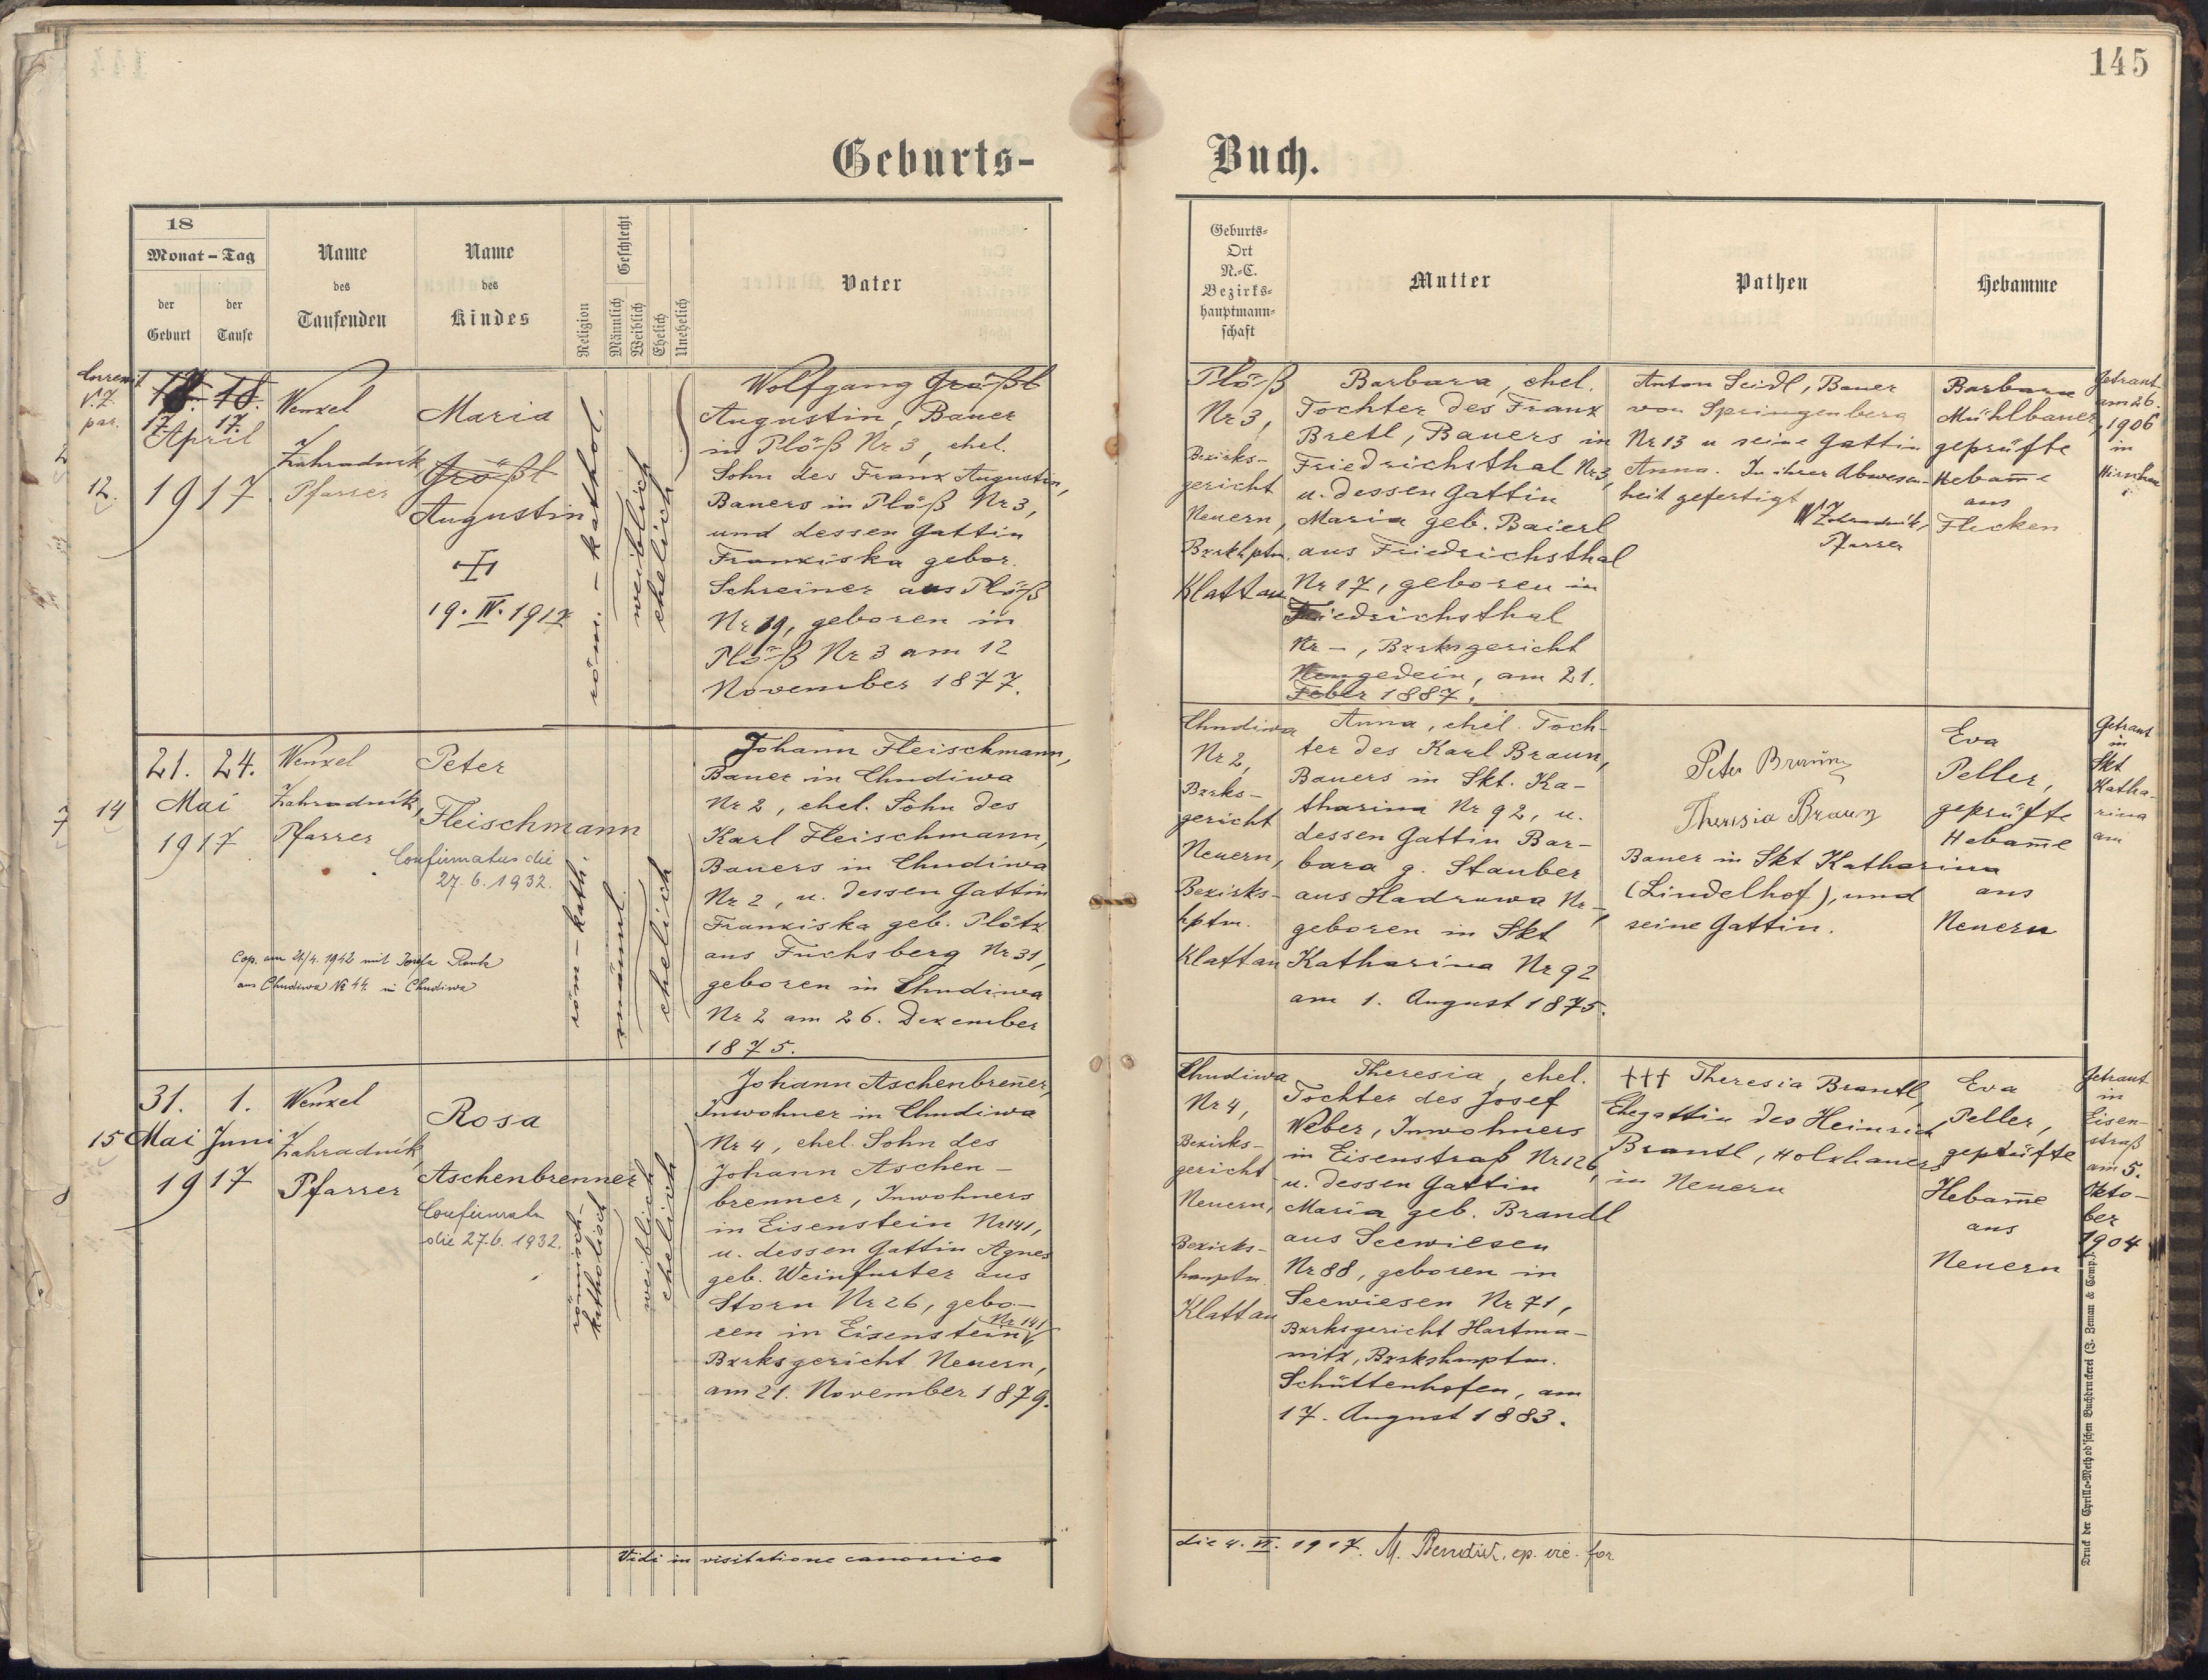 145
Geburts- Buch.
18
Monat - Tag
der Geburt
der Taufe
Name des Taufenden
Name des Kindes
Religion
Geschlecht
Männlich
Weiblich
Ehelich
Unehelich
Vater
Geburts-
Ort
N.-C.
Bezirks-
hauptmann-
schaft
Mutter
Pathen
Hebamme
12.
18. 18.
17. 17.
April
1917
Wenzel
Zahradník
Pfarrer
Maria
Größl
Augustin
19. IV. 1917
röm. - kathol.
weiblich
ehelich
Wolfgang Größl
Augustin, Bauer
in Plöß Nr 3, ehel.
Sohn des Franz Augustin,
Bauers in Plöß Nr 3,
und dessen Gattin
Franziska gebor.
Schreiner aus Plöß
Nr 19, geboren in
Plöß Nr 3 am 12
November 1877.
Plöß
Nr 3,
Bezirks-
gericht
Neuern,
Bzrkhptm.
Klattau
Barbara, ehel.
Tochter des Franz
Bretl, Bauers in
Friedrichsthal Nr 3,
u. dessen Gattin
Maria geb. Baierl
aus Friedrichsthal
Nr 17, geboren in
Friedrichsthal
Nr -, Bzrksgericht
Neugedein, am 21.
Feber 1887.
Anton Seidl, Bauer
von Springenberg
Nr 13 u seine Gattin
Anna. In ihrer Abwesen-
heit gefertigt
W Zahradník,
Pfarrer
Barbara
Mühlbauer,
geprüfte
Hebam̄e
aus
Flecken
Getraut
am 26.
1906
in
14
21. 24.
Mai
1917
Wenzel
Zahradník,
Pfarrer
Peter
Fleischmann
Confirmatus die
27. 6. 1932.
Cop. am 21/4. 1942 mit Josefa
aus Chudiwa № 44. in Chudiwa
röm - kath.
männl.
ehelich
Johann Fleischmann,
Bauer in Chudiwa
Nr 2, ehel. Sohn des
Karl Fleischmann,
Bauers in Chudiwa
Nr 2, u. dessen Gattin
Franziska geb. Plötz
aus Fuchsberg Nr 31,
geboren in Chudiwa
Nr 2 am 26. Dezember
1875.
Chudiwa
Nr 2,
Bzrks-
gericht
Neuern,
Bezirks-
hptm.
Klattau
Anna, ehel. Toch-
ter des Karl Braun,
Bauers in Skt. Ka-
tharina Nr 92, u.
dessen Gattin Bar-
bara g. Stauber
aus Hadruwa Nr -,
geboren in Skt
Katharina Nr 92
am 1. August 1875.
Peter Braun
Theresia Braun
Bauer in Skt Katharina
(Lindelhof), und
seine Gattin.
Eva
Peller,
geprüfte
Hebam̄e
aus
Neuern
Getraut
in
Skt
Katha-
rina
am
15
31. 1.
Mai Juni
1917
Wenzel
Zahradník,
Pfarrer
Rosa
Aschenbrenner
Confirmata
die 27.6. 1932.
römisch-
katholisch
weiblich
ehelich
Johann Aschenbren̄er,
Inwohner in Chudiwa
Nr 4, ehel. Sohn des
Johann Aschen-
brenner, Inwohners
in Eisenstein Nr 141,
u. dessen Gattin Agnes
geb. Weinfurter aus
Storn Nr 26, gebo-
ren in Eisenstein Nr 141,
Bzrksgericht Neuern,
am 21. November 1879.
Chudiwa
Nr 4,
Bezirks-
gericht
Neuern,
Bezirks-
hauptm.
Klattau
Theresia, ehel.
Tochter des Josef
Weber, Inwohners
in Eisenstraß Nr 126,
u. dessen Gattin
Maria geb. Brandl
aus Seewiesen
Nr 88, geboren in
Seewiesen Nr 71,
Bzrksgericht Hartma-
nitz, Bzrkshauptm.
Schüttenhofen, am
17. August 1883.
††† Theresia Brantl,
Ehegattin des Heinrich
Brantl, Holzhauers
in Neuern
Eva
Peller,
geprüfte
Hebam̄e
aus
Neuern
Getraut
in
Eisen-
straß
am 5.
Okto-
ber
1904
Vidi in visitatione canonica
die 4. VI. 1917. M.
Druck der Cyrillo-Method'schen Buchdruckerei (J. Zeman & Comp.).